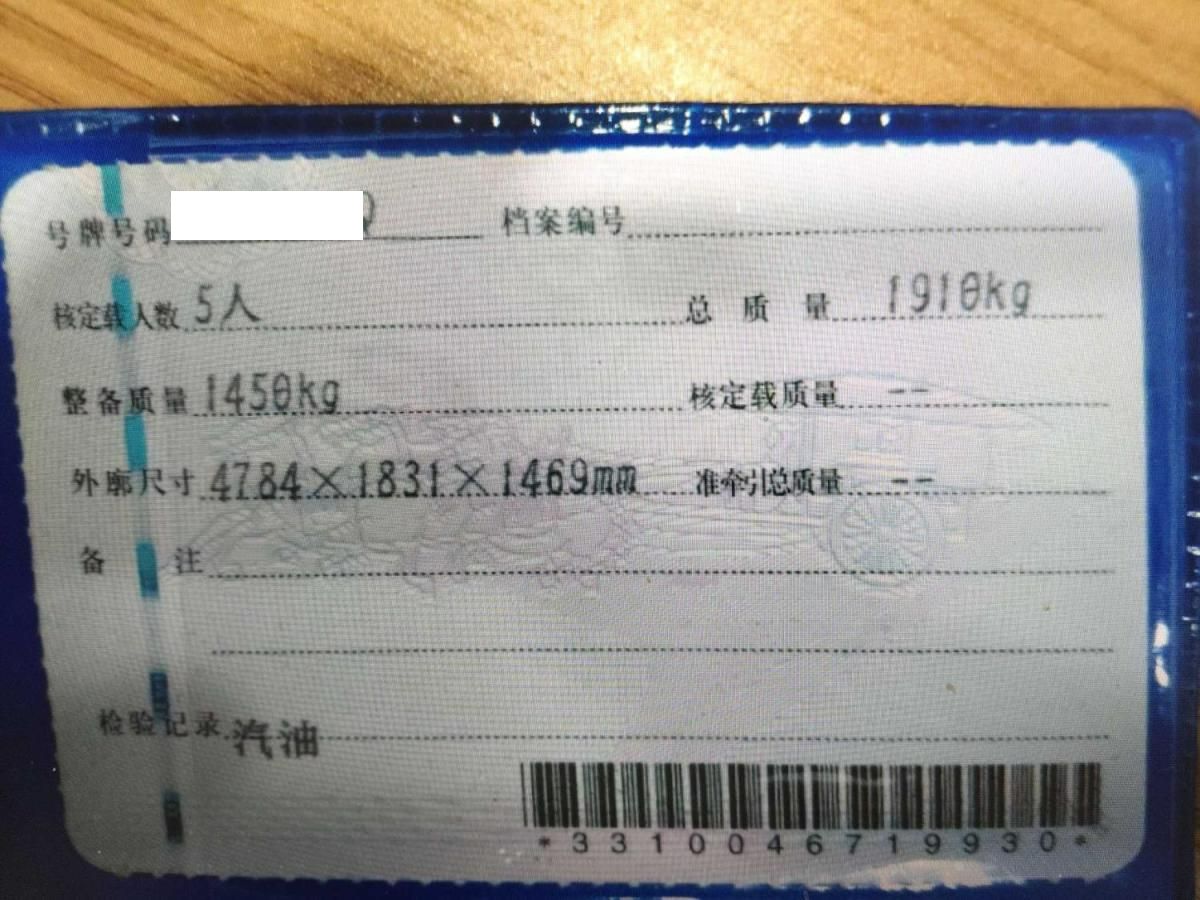 号牌号码 档案编号
核定载人数 5人 总质量 1910kg
整备质量 1450kg 核定载质量 --
外廓尺寸 4784×1831×1469mm 准牵引总质量 --
备注
检验记录 汽油
*3310046719930*